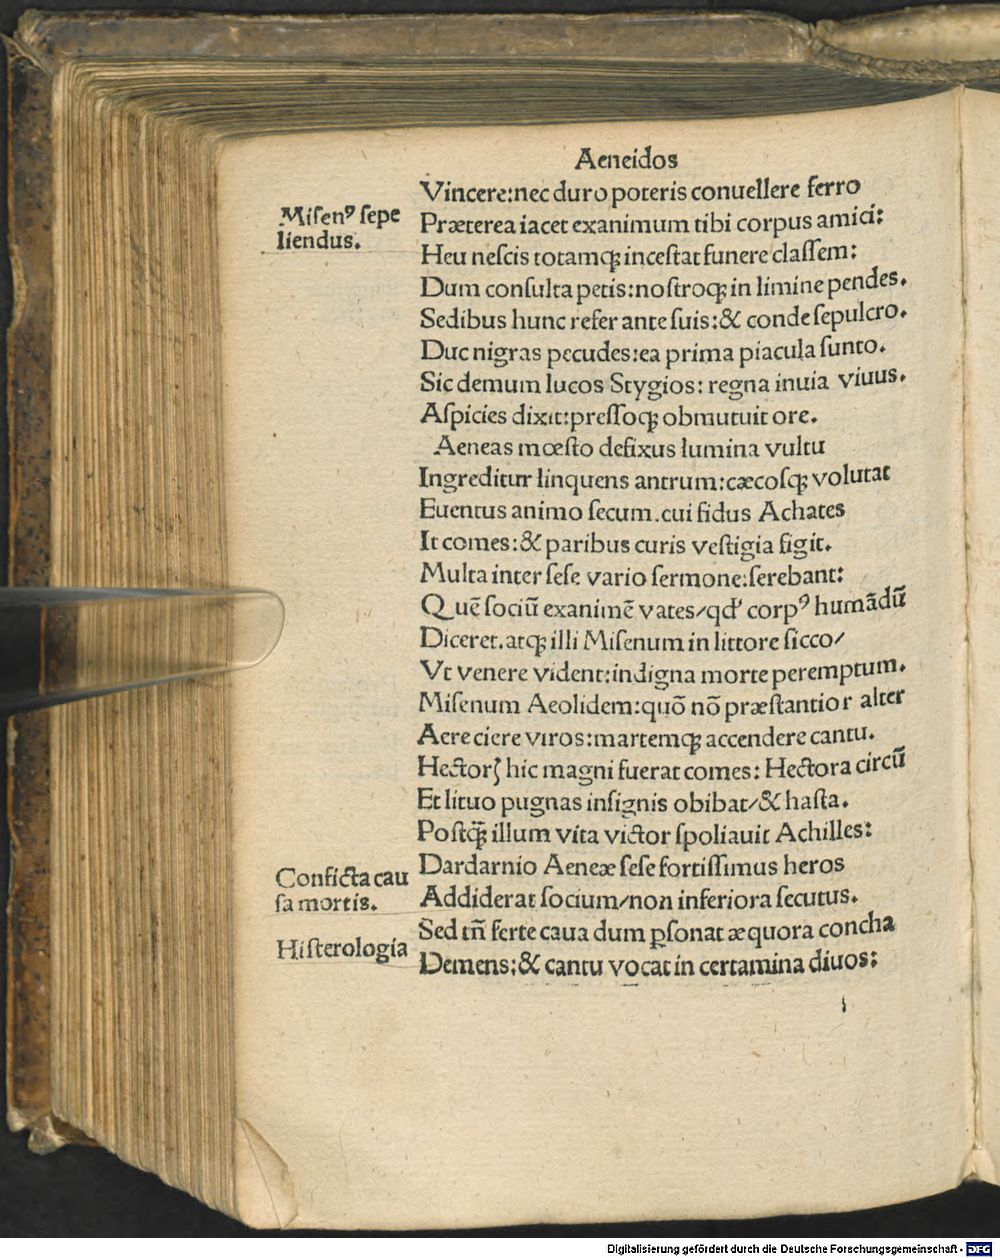 Aeneidos
Vincere:nec duro poteris conuellere ferro
Miſenꝰ ſepe
liendus.
Præterea iacet exanimum tibi corpus amici:
Heu neſcis totamqꝫ inceſtat funere claſſem:
Dum conſulta petis:noſtroqꝫ in limine pendes.
Sedibus hunc refer ante ſuis:& conde ſepulcro.
Duc nigras pecudes:ea prima piacula ſunto.
Sic demum lucos Stygios: regna inuia viuus.
Aſpicies dixit:preſſoqꝫ obmutuit ore.
Aeneas mœſto defixus lumina vultu
Ingreditur linquens antrum:cæcoſqꝫ volutat
Euentus animo ſecum.cui fidus Achates
It comes:& paribus curis veſtigia figit.
Multa inter ſeſe vario ſermone:ſerebant:
Quē ſociū exanimē vates/qdʼ corpꝰ humādū
Diceret.atqꝫ illi Miſenum in littore ſicco/
Vt venere vident:indigna morte peremptum.
Miſenum Aeolidem:quō nō præſtantior alter
Aere ciere viros:martemqꝫ accendere cantu.
Hectorꝭ hic magni fuerat comes: Hectora circū
Et lituo pugnas inſignis obibat/& haſta.
Poſtqꝫ̄ illum vita victor ſpoliauit Achilles:
Dardarnio Aeneæ ſeſe fortiſſimus heros
Conficta cau
ſa mortis.
Addiderat ſocium/non inferiora ſecutus.
Sed tn̄ ferte caua dum ꝑſonat æquora concha
Hiſterologia
Demens:& cantu vocat in certamina diuos:
Digitalisierung gefördert durch die Deutsche Forschungsgemeinschaft - DFG